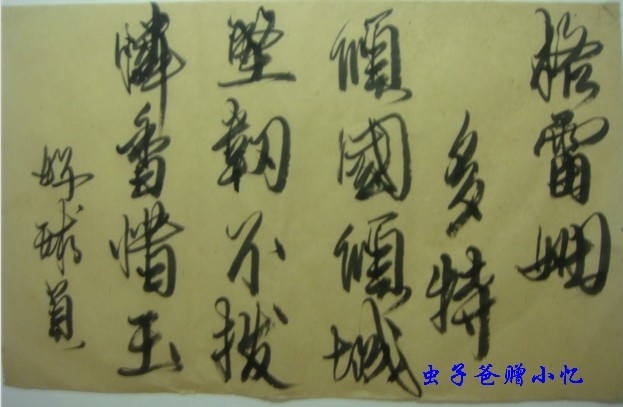 格雷姆
多特
傾國傾城
堅韌不拔
憐香惜玉
好球員
虫子爸赠小忆